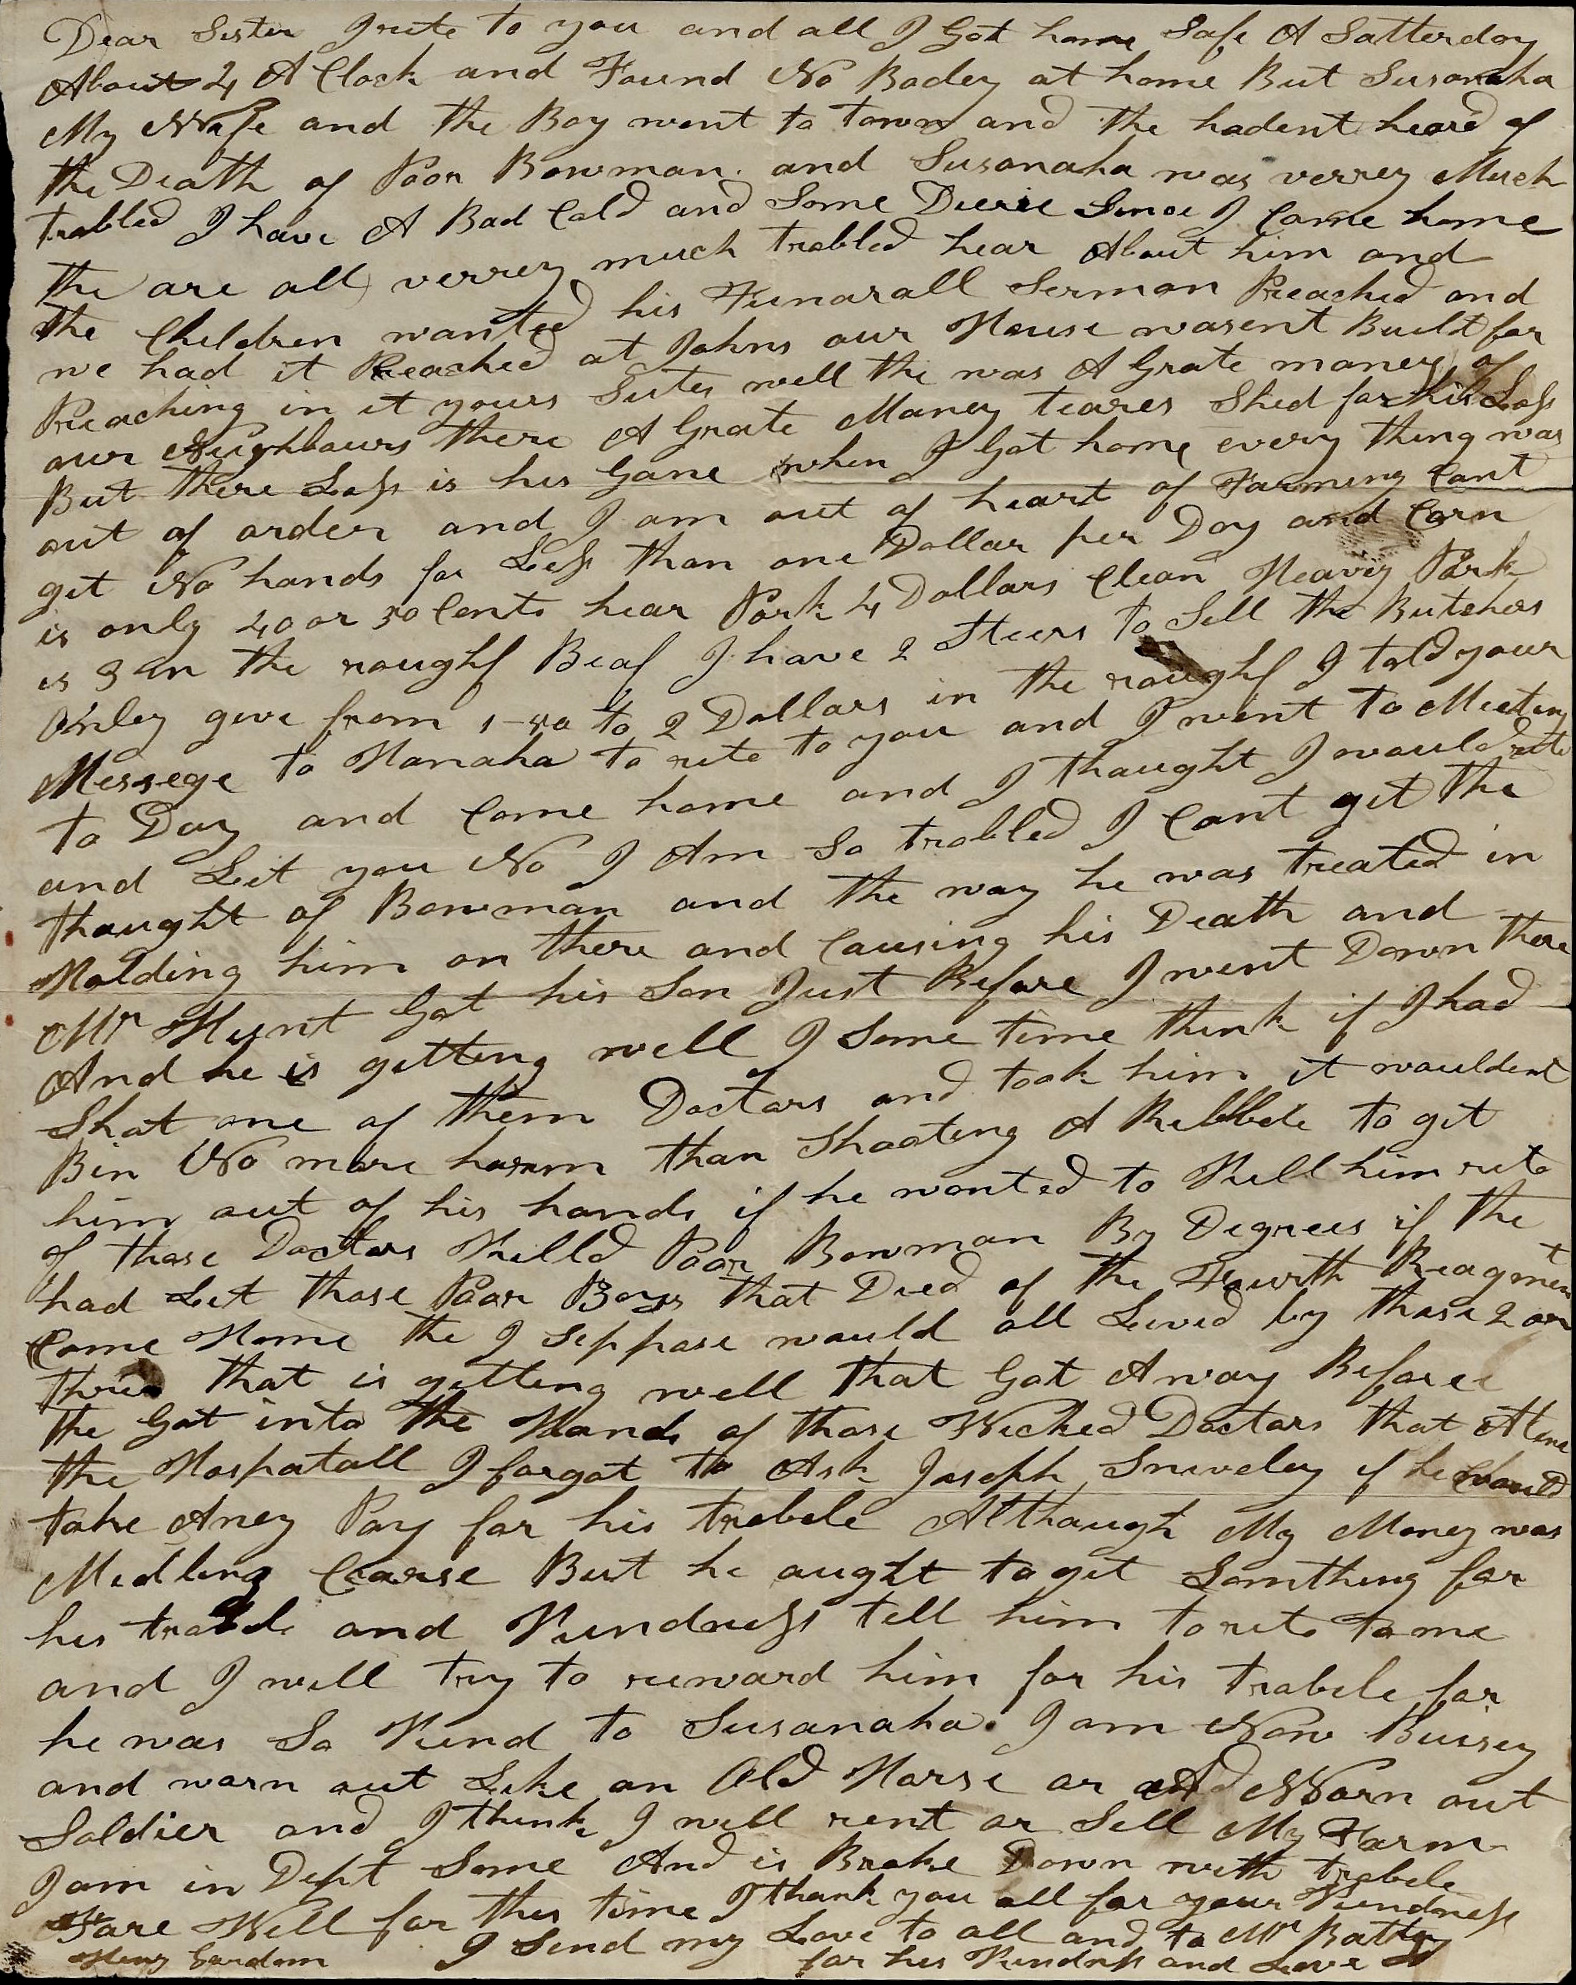 Dear Sister I rite to you and all I Got home Safe A Satterday
About 4 A Clock and Found No Badey at home But Susanaha
My Wife and the Boy went to Town and the hadent heard of
the Death of Poor Bowman. and Susanaha was verrey Much
trabled I have A Bad Cald and Some Since I Came home
the are all verrey much trabled hear About him and
the Children wanted his Funarall Serman Preached and
we had it Preached at Johns our House wasent Buildt for
Preaching in it yours Sister well the was A Grate maney of
our Neighbours there A Grate Maney teares Shed for his Loss
But there Loss is his Gane when I Got home every thing was
out of order and I am out of heart of Farming Cant
get No hands for Less than one Dollar per Day and Carn
is only 40 or 50 Cents hear Pork 4 Dollars Clean Heavey Pork
is 3 in the roughf Beaf I have 2 Steers to Sell the Butchers
Onley give from 1-50 to 2 Dollars in the roughf I told your
Messege to Hanaha to rite to you and I went to Meeting
to Day and Come home and I thaught I would rite
and Let you No I Am So trabled I Cant get the
thaught of Bowman and the way he was treated in
Holding him on there and Causing his Death and
Mr Hunt Got his Son Just Before I went Down there
And he is getting well I Some time think if I had
Shot one of them Doctars and took him it wouldent
Bin No more harm than Shooting A Rebbele to git
him out of his hands if he wonted to Kill him rite
of those Doctars Killd Poor Bowman By Degrees if the
had Let those Poor Boys that Died of the Fourth Reagment
Come Home the I Seppose would all Lived by those 2 or
three that is getting well that Got Away Before
the Got into the Hands of those Wicked Doctars that Atend
the Hospatall I forgot to Ask Joseph Sniveley if he would
take Aney Pay for his trabele Althaugh My Money was
Midling Scarse But he aught to get Somthing for
his trabele and Kindness tell him to rite to me
and I will try to reward him for his trabele for
he was So Kind to Susanaha. I am Now Buisey
and warn out Like an Old Horse or Worn out
Soldier and I think I will rent or Sell My Farm
I am in Dept Some And is Broke Down with trabele
Fare Well for this time I thank you all for your Kindness
I Send my Love to all and to Mr
Henry Gardom for his Kindness and Love